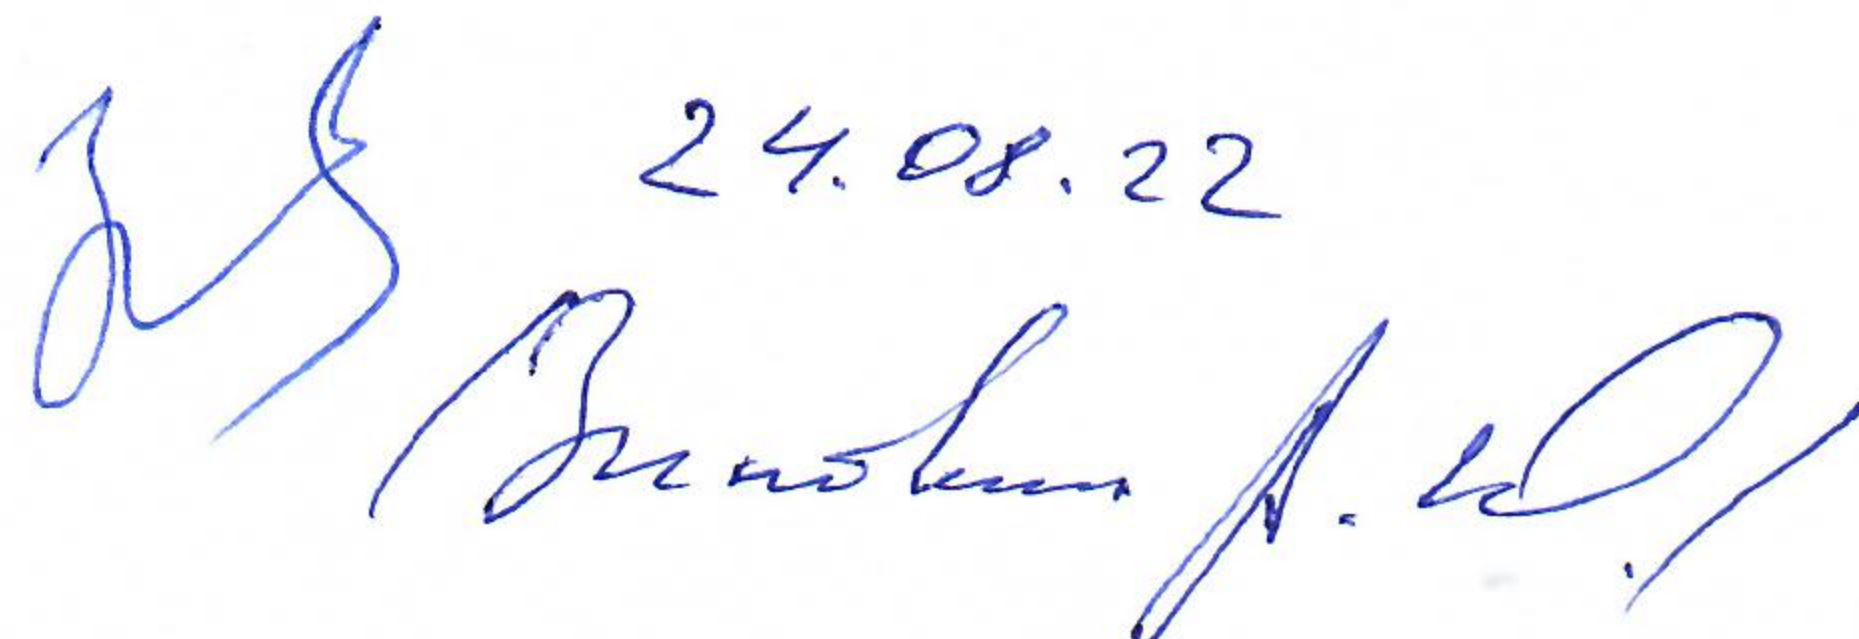 24.08.22
/Зиновкин А. Ю./